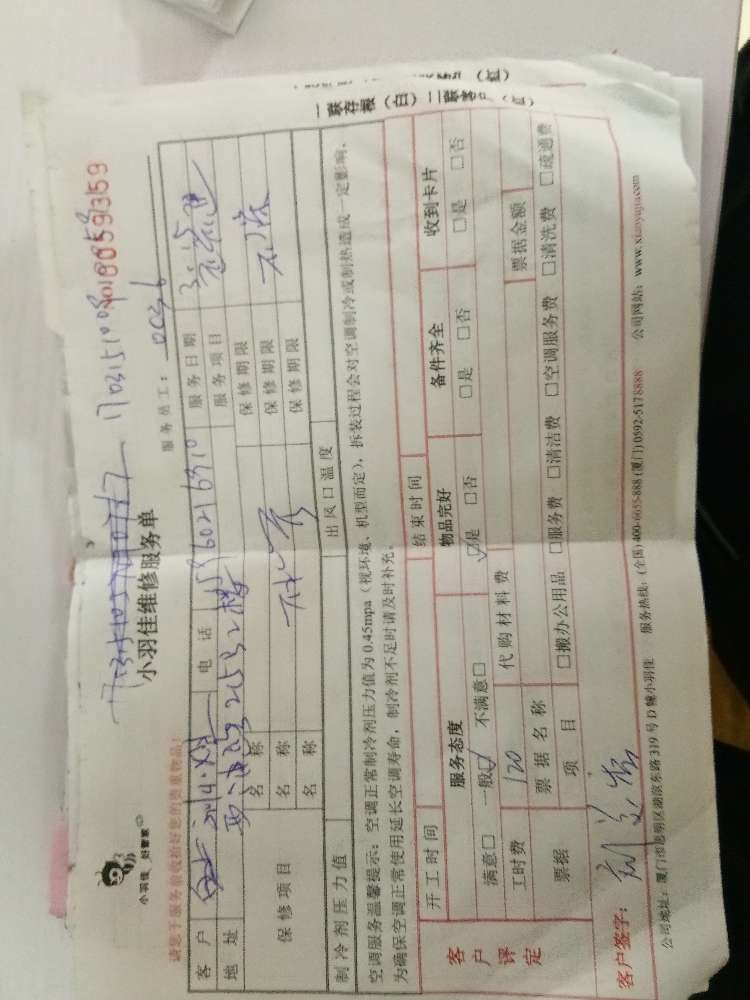 一联存根（白）二联客户（红）
小羽佳 好管家
170315100
0180059359
小羽佳维修服务单
服务员工：0036
请您于服务前收拾好您的贵重物品！
客户 电话 服务日期 3.15
地址 服务项目
保修项目 名称 保修期限
名称 保修期限
名称 保修期限
制冷剂压力值 出风口温度
空调服务温馨提示：空调正常制冷剂压力值为0.45mpa（视环境、机型而定），拆装过程会对空调制冷或制热造成一定影响，
为确保空调正常使用延长空调寿命，制冷剂不足时请及时补充。
开工时间 结束时间
客户评定 服务态度 物品完好 备件齐全 收到卡片
满意□ 一般□✓ 不满意□ ☑是 □否 □是 □否 □是 □否
工时费 120 代购材料费 票据金额
票据 票据名称
项目 □搬办公用品 □服务费 □清洁费 □空调服务费 □清洗费 □疏通费
客户签字：
公司地址：厦门市思明区湖滨东路319号D幢小羽佳 服务热线：(全国)400-6655-888 (厦门)0592-5178888 公司网站：www.xiaoyujia.com